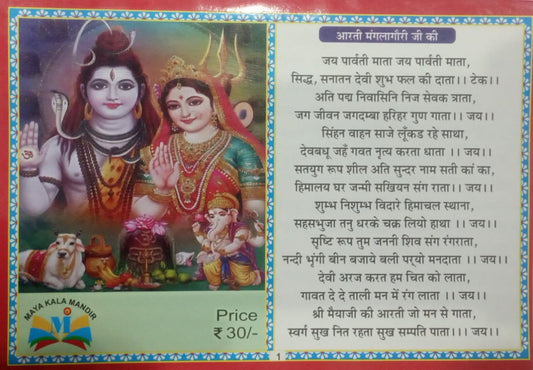 MAYA KALA MANDIR
Price
₹ 30/-
आरती मंगलागौरी जी की
जय पार्वती माता जय पार्वती माता,
सिद्ध, सनातन देवी शुभ फल की दाता।। टेक।।
अति पद्म निवासिनि निज सेवक त्राता,
जग जीवन जगदम्बा हरिहर गुण गाता।। जय।।
सिंहन वाहन साजे लूँकड रहे साथा,
देवबधू जहँ गवत नृत्य करता धाता ।। जय।।
सतयुग रूप शील अति सुन्दर नाम सती कां का,
हिमालय घर जन्मी सखियन संग राता।। जय।।
शुम्भ निशुम्भ विदारे हिमाचल स्थाना,
सहसभुजा तनु धरके चक्र लियो हाथा ।। जय।।
सृष्टि रूप तुम जननी शिव संग रंगराता,
नन्दी भृंगी बीन बजाये बली पर्यो मनदाता ।। जय।।
देवी अरज करत हम चित को लाता,
गावत दे दे ताली मन में रंग लाता ।। जय।।
श्री मैयाजी की आरती जो मन से गाता,
स्वर्ग सुख नित रहता सुख सम्पति पाता।।। जय।।
1